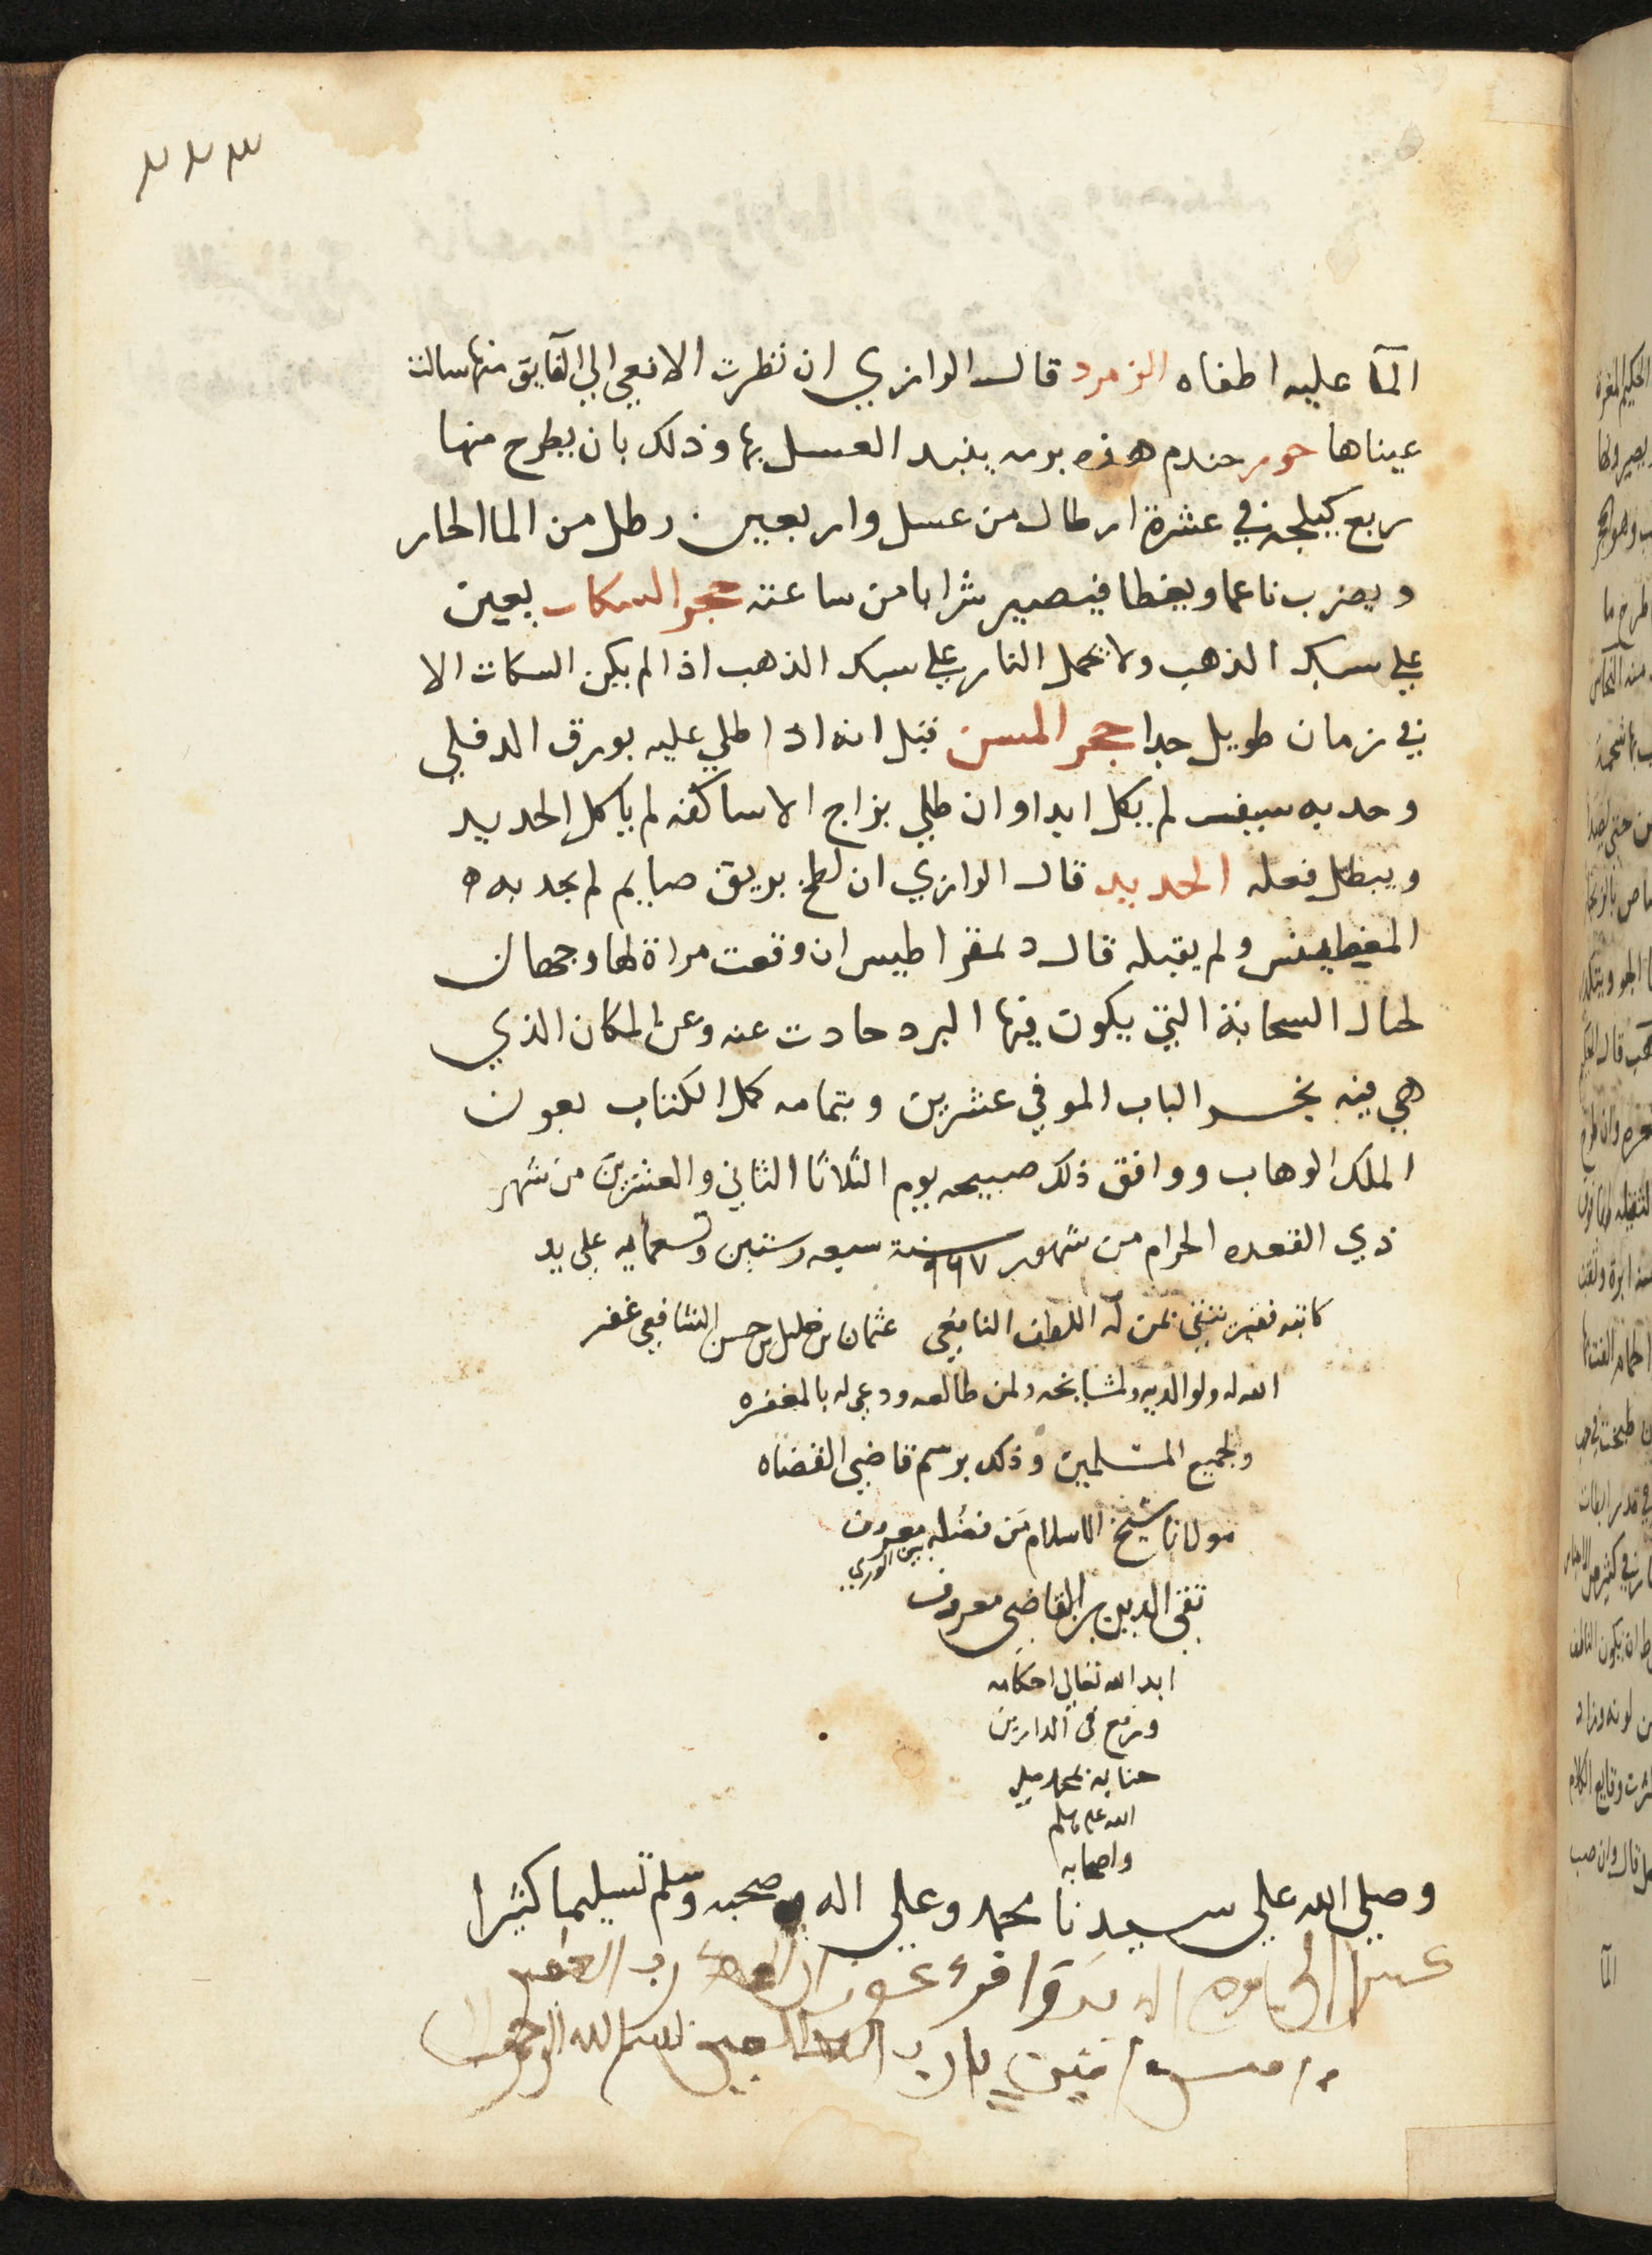 ٢٢٣
المآ عليه اطفاه الزمرد قال الرازي ان نظرت الافعي الي الفايق منها سالت
عيناها جوز جندم هذه يربه ينبد العسل بها وذلك بان يطرح منها
ربع كيلجه في عشرة ارطال من عسل واربعين رطل من الما الحار
ويضرب ناعما ويغطا فيصير شرابا من ساعته حجر السكات يعين
علي سبك الذهب ولا تحمل النار علي سبك الذهب اذا لم يكن السكات الا
في زمان طويل جدا حجر المسن قيل انه اذا طلي عليه بورق الدفلي
وحد به سيف لم يكل ابدا وان طلي بزاج الاساكفه لم ياكل الحديد
ويبطل فعله الحديد قال الرازي ان لطخ بريق صايم لم يجدبه
المغيطيس ولم يقبله قال دمقراطيس ان وقعت مراة لها وجهان
لحال السحابة التي يكون فيها البرد حادت عنه وعن المكان الذي
هي فيه نجز الباب الموفي عشرين وبتمامه كمل الكتاب بعون
الملك الوهاب ووافق ذلك صبيحه يوم الثلاثا الثاني والعشرين من شهر
ذي القعده الحرام من شهور سنة ٩٦٧ سبعه وستين وتسعمايه علي يد
كاتبه فقير عثمان بن خليل بن حسن الشافعي غفر
الله له ولوالديه ولمشايخه ولمن طالعه ودعي له بالمغفره
ولجميع المسلمين وذلك برسم قاضي القضاه
مولانا شيخ الاسلام من فضله معروف
بين الوري
تقي الدين بن القاضي معروف
ابد الله تعالي احكامه
ورفع في الدارين
جنابه بمحمد صلي
الله عليه وسلم
واصحابه
وصلي الله علي سيدنا محمد وعلي اله وصحبه وسلم تسليما كثيرا
امين يا رب العالمين بسم الله الرحمن